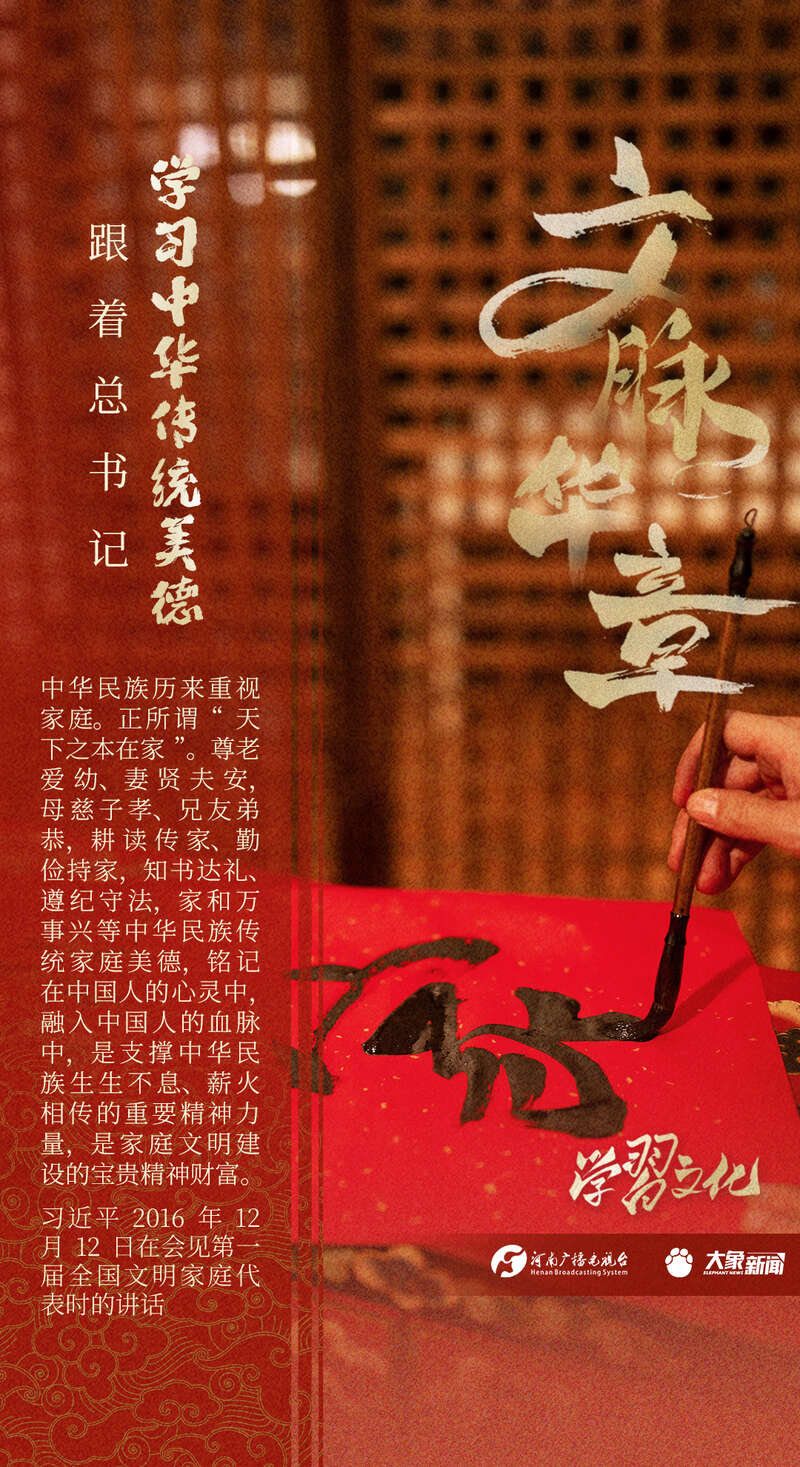 文脉华章
学习中华传统美德
跟着总书记
中华民族历来重视
家庭。正所谓“天
下之本在家”。尊老
爱幼、妻贤夫安，
母慈子孝、兄友弟
恭，耕读传家、勤
俭持家，知书达礼、
遵纪守法，家和万
事兴等中华民族传
统家庭美德，铭记
在中国人的心灵中，
融入中国人的血脉
中，是支撑中华民
族生生不息、薪火
相传的重要精神力
量，是家庭文明建
设的宝贵精神财富。
习近平 2016 年 12
月 12 日在会见第一
届全国文明家庭代
表时的讲话
学習文化
河南广播电视台
Henan Broadcasting System
大象新闻
ELEPHANT NEWS